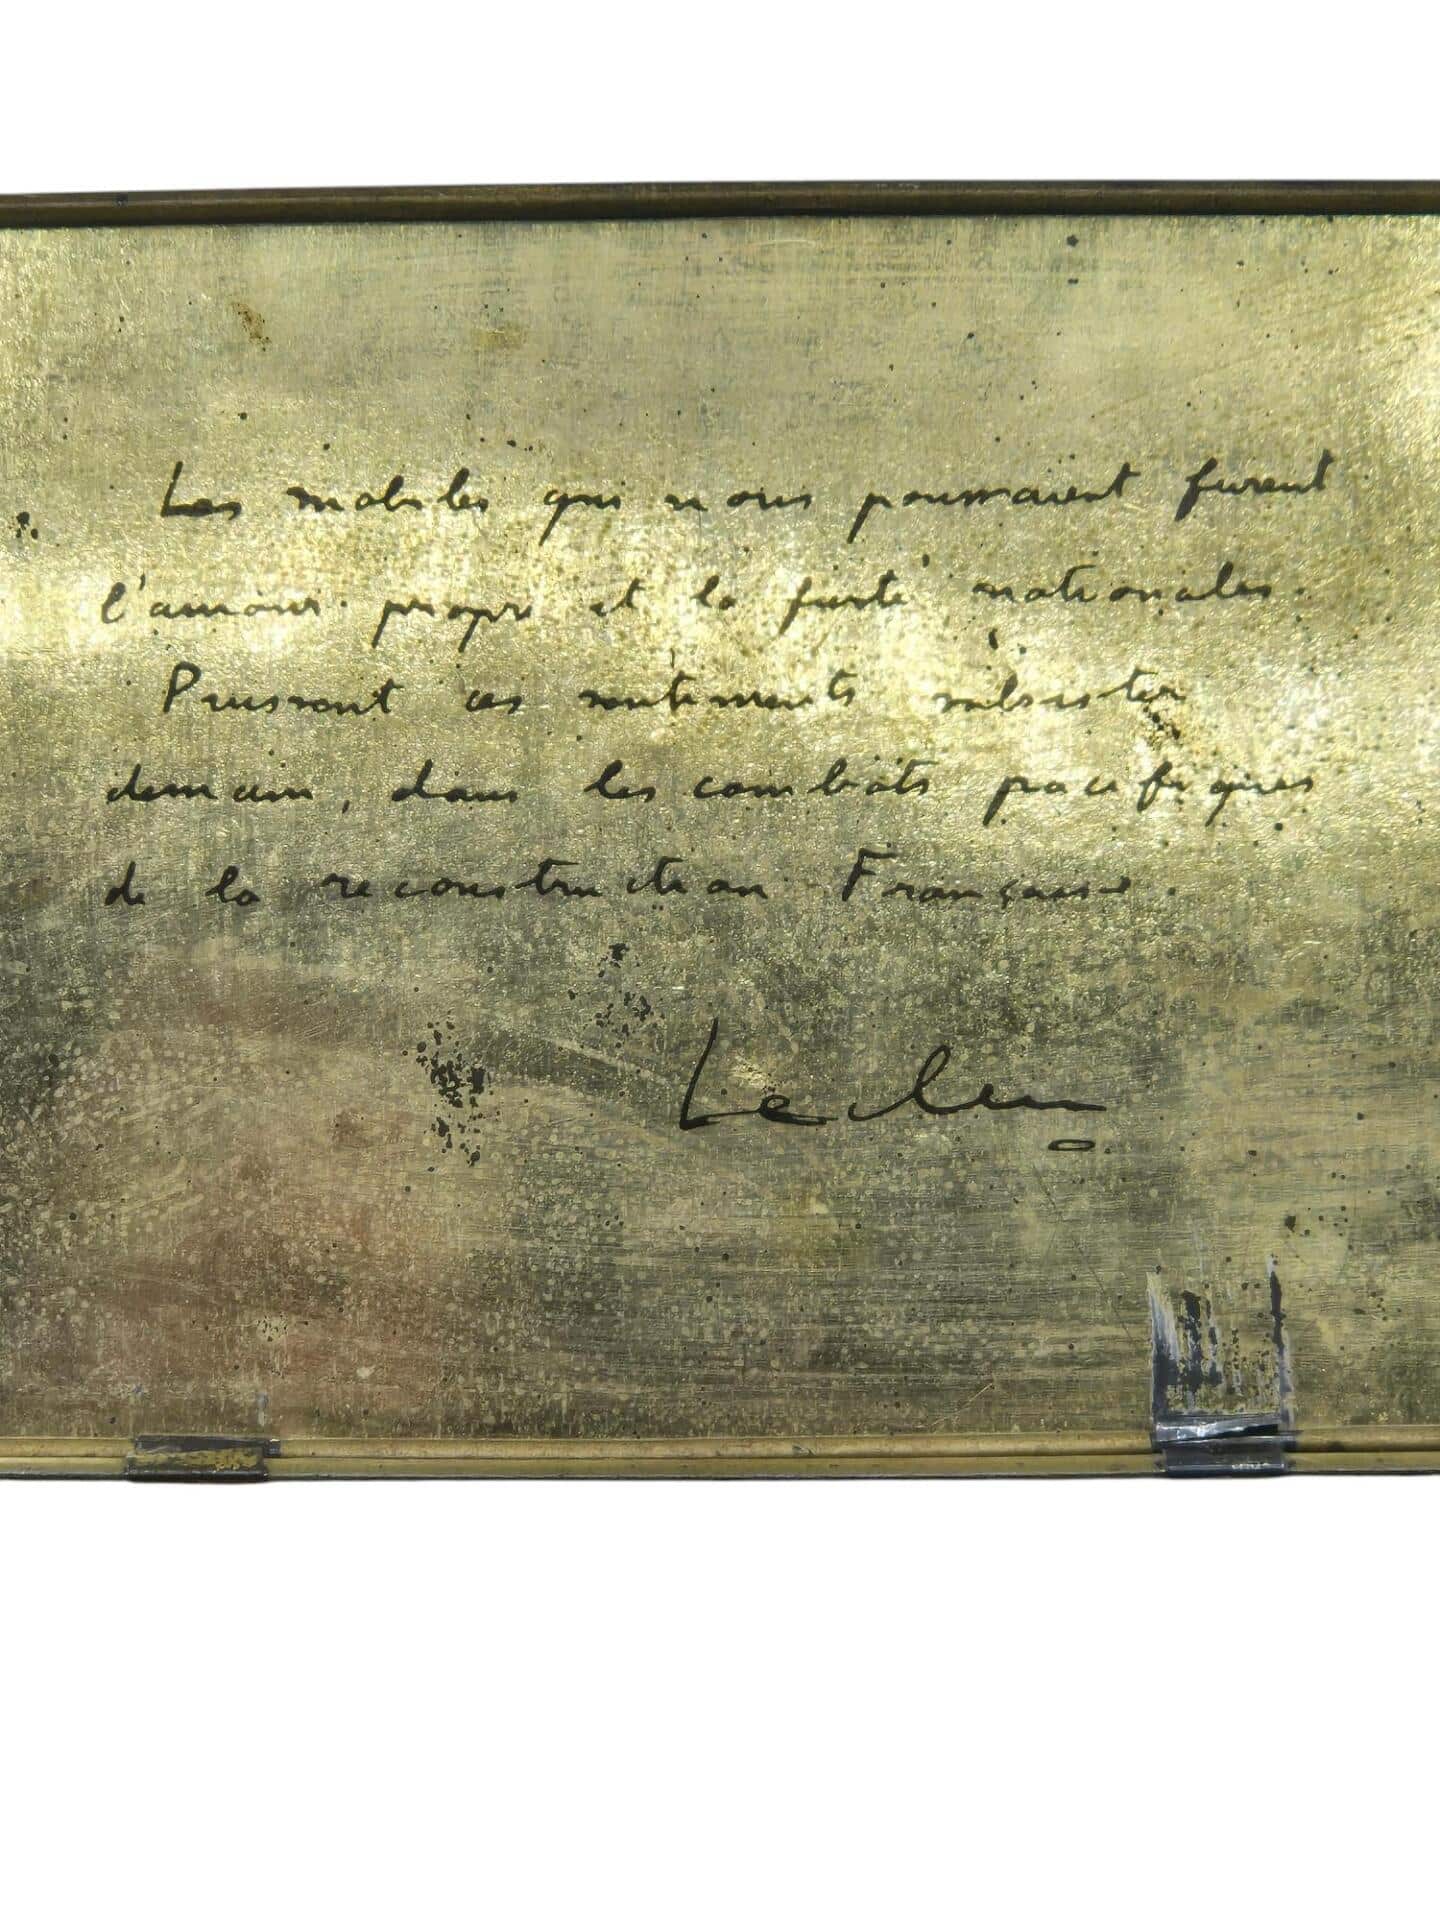 Les mobiles qui nous poussaient furent
l'amour propre et la fierté nationales.
Puissent ces sentiments subsister
demain, dans les combats pacifiques
de la reconstruction Française.
Leclerc